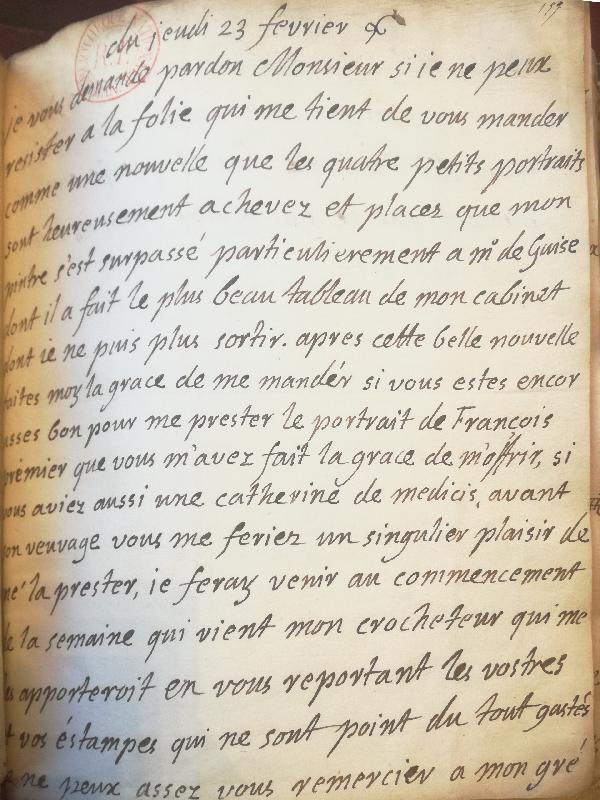 157
du jeudi 23 fevrier
je vous demande pardon Monsieur si ie ne peux
resister a la folie qui me tient de vous mander
comme une nouvelle que les quatre petits portraits
sont heureusement achevez et placez que mon
pintre s'est surpassé particulierement a mr de Guise
dont il a fait le plus beau tableau de mon cabinet
dont ie ne puis plus sortir. apres cette belle nouvelle
faites moy la grace de me mandér si vous estes encor
asses bon pour me prester le portrait de François
premier que vous m'avez fait la grace de m'offrir, si
vous aviez aussi une catherine de medicis, avant
son veuvage vous me feriez un singulier plaisir de
me la prester, ie feray venir au commencement
de la semaine qui vient mon crocheteur qui me
les apporteroit en vous reportant les vostres
et vos éstampes qui ne sont point du tout gastés
je ne peux assez vous remercier a mon gré